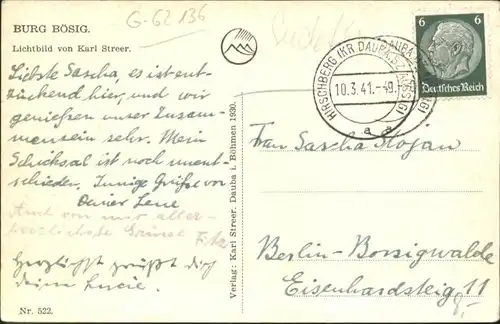 BURG BÖSIG.
G-62 136
Lichtbild von Karl Streer.
Liebste Sascha, es ist ent-
zückend hier, und wir
genießen unser Zusam-
mensein sehr. Mein
Schicksal ist noch unent-
schieden. Innige Grüße von
Deiner Lene
Auch von mir aller-
herzlichste Grüsse
Herzlichst grüßt dich
deine Lucie.
Nr. 522.
Verlag: Karl Streer, Dauba i. Böhmen 1930.
HIRSCHBERG (KR DAUBA)
10.3.41.-
a
6 6
Deutsches Reich
Frau Sascha Stojan
Berlin-Borsigwalde
Eisenhardsteig 11